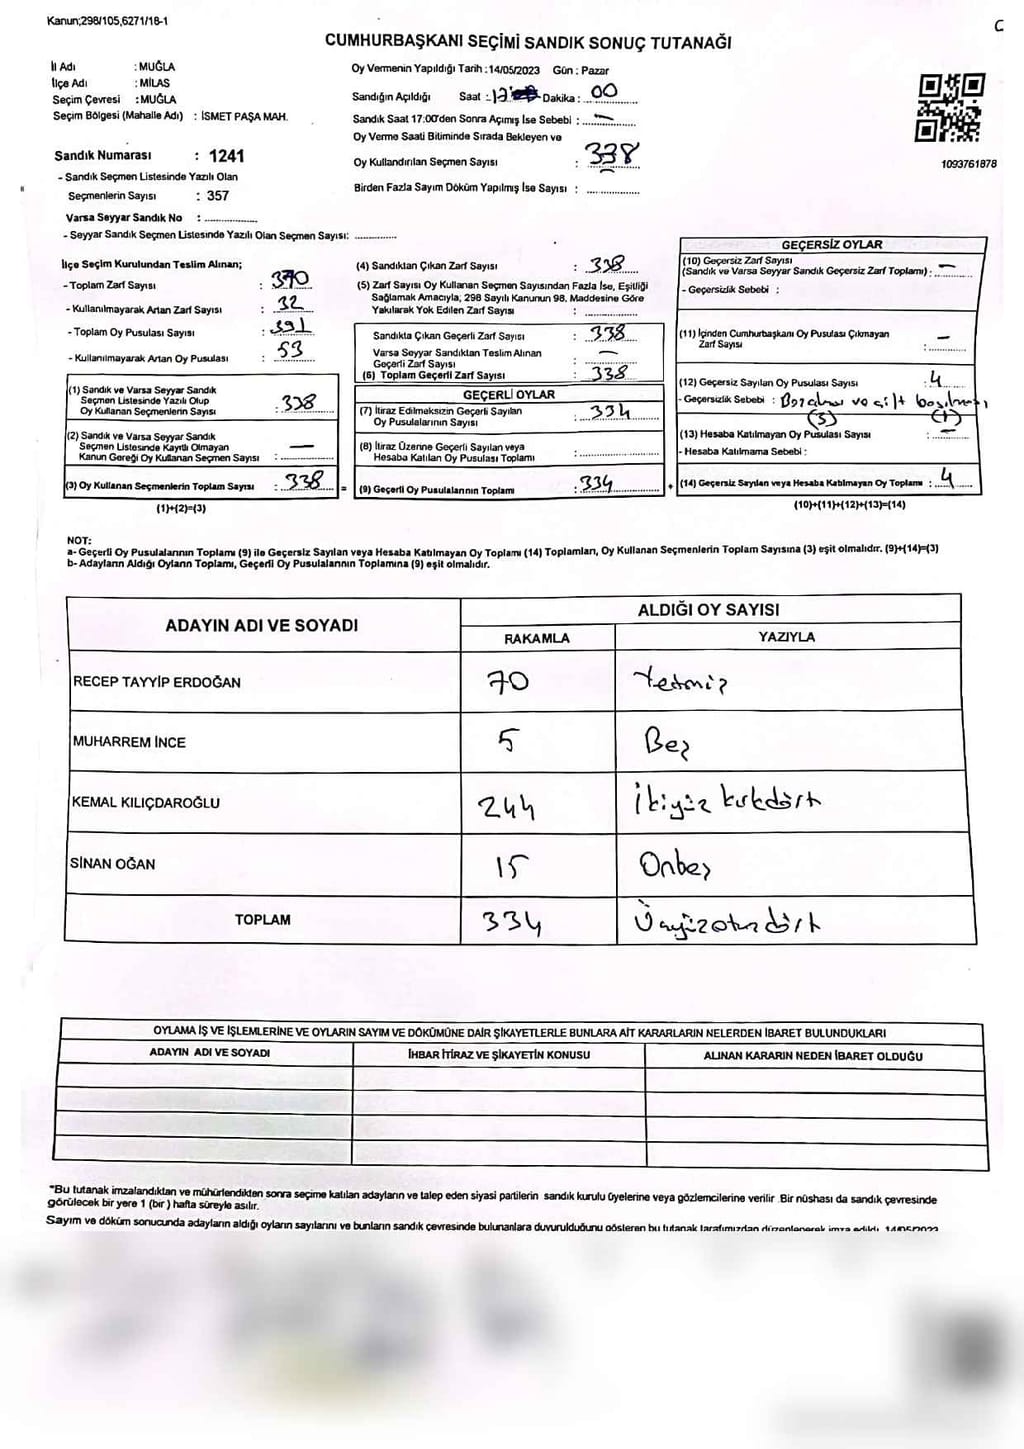 Kanun;298/105,6271/18-1
C
CUMHURBAŞKANI SEÇİMİ SANDIK SONUÇ TUTANAĞI
İl Adı : MUĞLA
İlçe Adı : MİLAS
Seçim Çevresi : MUĞLA
Seçim Bölgesi (Mahalle Adı) : İSMET PAŞA MAH.
Sandık Numarası : 1241
- Sandık Seçmen Listesinde Yazılı Olan
Seçmenlerin Sayısı : 357
Varsa Seyyar Sandık No : ..............
- Seyyar Sandık Seçmen Listesinde Yazılı Olan Seçmen Sayısı: ............
Oy Vermenin Yapıldığı Tarih : 14/05/2023 Gün : Pazar
Sandığın Açıldığı Saat : 17 Dakika : 00
Sandık Saat 17:00'den Sonra Açımış İse Sebebi : —
Oy Verme Saati Bitiminde Sırada Bekleyen ve
Oy Kullandırılan Seçmen Sayısı : 338
Birden Fazla Sayım Döküm Yapılmış İse Sayısı : ..............
1093761878
İlçe Seçim Kurulundan Teslim Alınan;
- Toplam Zarf Sayısı : 370
- Kullanılmayarak Artan Zarf Sayısı : 32
- Toplam Oy Pusulası Sayısı : 391
- Kullanılmayarak Artan Oy Pusulası : 53
(1) Sandık ve Varsa Seyyar Sandık
Seçmen Listesinde Yazılı Olup
Oy Kullanan Seçmenlerin Sayısı : 338
(2) Sandık ve Varsa Seyyar Sandık
Seçmen Listesinde Kayıtlı Olmayan
Kanun Gereği Oy Kullanan Seçmen Sayısı : —
(3) Oy Kullanan Seçmenlerin Toplam Sayısı : 338 =
(1)+(2)=(3)
(4) Sandıktan Çıkan Zarf Sayısı : 338
(5) Zarf Sayısı Oy Kullanan Seçmen Sayısından Fazla İse, Eşitliği
Sağlamak Amacıyla; 298 Sayılı Kanunun 98. Maddesine Göre
Yakılarak Yok Edilen Zarf Sayısı : ..............
Sandıkta Çıkan Geçerli Zarf Sayısı : 338
Varsa Seyyar Sandıktan Teslim Alınan
Geçerli Zarf Sayısı : —
(6) Toplam Geçerli Zarf Sayısı : 338
GEÇERLİ OYLAR
(7) İtiraz Edilmeksizin Geçerli Sayılan
Oy Pusulalarının Sayısı : 334
(8) İtiraz Üzerine Geçerli Sayılan veya
Hesaba Katılan Oy Pusulası Toplamı : ..............
(9) Geçerli Oy Pusulalarının Toplamı : 334 +
GEÇERSİZ OYLAR
(10) Geçersiz Zarf Sayısı
(Sandık ve Varsa Seyyar Sandık Geçersiz Zarf Toplamı) : —
- Geçersizlik Sebebi :
(11) İçinden Cumhurbaşkanı Oy Pusulası Çıkmayan
Zarf Sayısı : —
(12) Geçersiz Sayılan Oy Pusulası Sayısı : 4
- Geçersizlik Sebebi : ve çift basılması
(3) (1)
(13) Hesaba Katılmayan Oy Pusulası Sayısı : —
- Hesaba Katılmama Sebebi :
(14) Geçersiz Sayılan veya Hesaba Katılmayan Oy Toplamı : 4
(10)+(11)+(12)+(13)=(14)
NOT:
a- Geçerli Oy Pusulalarının Toplamı (9) ile Geçersiz Sayılan veya Hesaba Katılmayan Oy Toplamı (14) Toplamları, Oy Kullanan Seçmenlerin Toplam Sayısına (3) eşit olmalıdır. (9)+(14)=(3)
b- Adayların Aldığı Oyların Toplamı, Geçerli Oy Pusulalarının Toplamına (9) eşit olmalıdır.
ADAYIN ADI VE SOYADI ALDIĞI OY SAYISI
RAKAMLA YAZIYLA
RECEP TAYYİP ERDOĞAN 70 Yetmiş
MUHARREM İNCE 5 Beş
KEMAL KILIÇDAROĞLU 244 İkiyüz kırkdört
SİNAN OĞAN 15 Onbeş
TOPLAM 334 Üçyüzotuzdört
OYLAMA İŞ VE İŞLEMLERİNE VE OYLARIN SAYIM VE DÖKÜMÜNE DAİR ŞİKAYETLERLE BUNLARA AİT KARARLARIN NELERDEN İBARET BULUNDUKLARI
ADAYIN ADI VE SOYADI İHBAR İTİRAZ VE ŞİKAYETİN KONUSU ALINAN KARARIN NEDEN İBARET OLDUĞU
"Bu tutanak imzalandıktan ve mühürlendikten sonra seçime katılan adayların ve talep eden siyasi partilerin sandık kurulu üyelerine veya gözlemcilerine verilir .Bir nüshası da sandık çevresinde
görülecek bir yere 1 (bir ) hafta süreyle asılır.
Sayım ve döküm sonucunda adayların aldığı oyların sayılarını ve bunların sandık çevresinde bulunanlara duyurulduğunu gösteren bu tutanak tarafımızdan düzenlenerek imza edildi. 14/05/2023